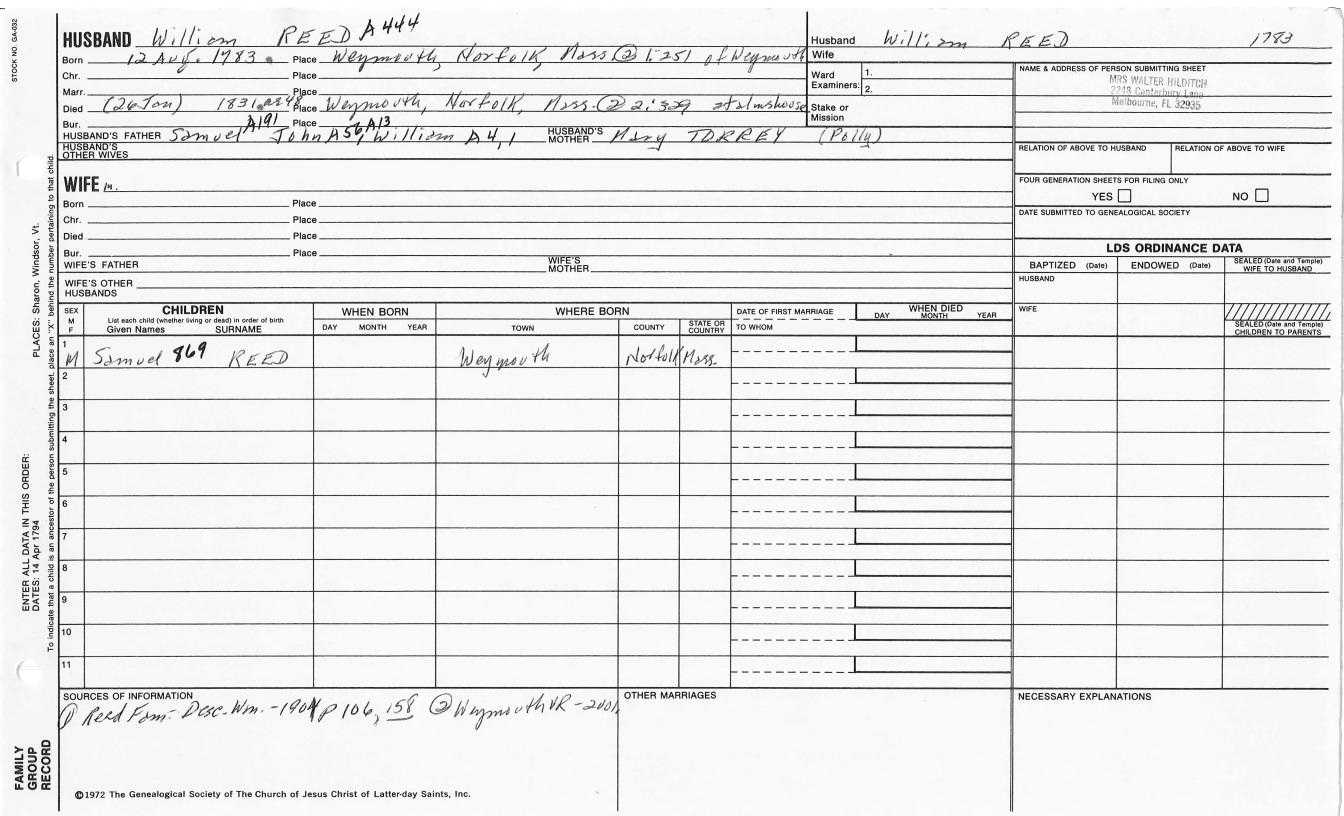 STOCK NO. GA-032
HUSBAND William REED A444
Born 12 Aug. 1783 Place Weymouth, Norfolk, Mass @ 1:251 of Weymouth
Chr. Place
Marr. Place
Died (26 Jan) 1831 Place Weymouth, Norfolk, Mass. @ 2:329 at almshouse
Bur. Place
HUSBAND'S FATHER Samuel A191 John A56, William A13 A4,1 HUSBAND'S MOTHER Mary TORREY (Polly)
HUSBAND'S OTHER WIVES
Husband William REED 1783
Wife
Ward Examiners: 1.
2.
Stake or Mission
NAME & ADDRESS OF PERSON SUBMITTING SHEET
MRS WALTER HILDITCH
2248 Canterbury Lane
Melbourne, FL 32935
RELATION OF ABOVE TO HUSBAND RELATION OF ABOVE TO WIFE
FOUR GENERATION SHEETS FOR FILING ONLY
YES NO
DATE SUBMITTED TO GENEALOGICAL SOCIETY
WIFE m.
Born Place
Chr. Place
Died Place
Bur. Place
WIFE'S FATHER WIFE'S MOTHER
WIFE'S OTHER HUSBANDS
LDS ORDINANCE DATA
BAPTIZED (Date) ENDOWED (Date) SEALED (Date and Temple) WIFE TO HUSBAND
HUSBAND
WIFE
SEALED (Date and Temple) CHILDREN TO PARENTS
SEX M F
CHILDREN
List each child (whether living or dead) in order of birth
Given Names SURNAME
WHEN BORN
DAY MONTH YEAR
WHERE BORN
TOWN COUNTY STATE OR COUNTRY
DATE OF FIRST MARRIAGE
TO WHOM
WHEN DIED
DAY MONTH YEAR
1 M Samuel 869 REED Weymouth Norfolk Mass.
2
3
4
5
6
7
8
9
10
11
SOURCES OF INFORMATION
① Reed Fam- Desc. Wm. -1901 p 106, 158 ② Weymouth VR - 2001
OTHER MARRIAGES
NECESSARY EXPLANATIONS
©1972 The Genealogical Society of The Church of Jesus Christ of Latter-day Saints, Inc.
FAMILY GROUP RECORD
ENTER ALL DATA IN THIS ORDER:
DATES: 14 Apr 1794
PLACES: Sharon, Windsor, Vt.
To indicate that a child is an ancestor of the person submitting the sheet, place an "X" behind the number pertaining to that child.